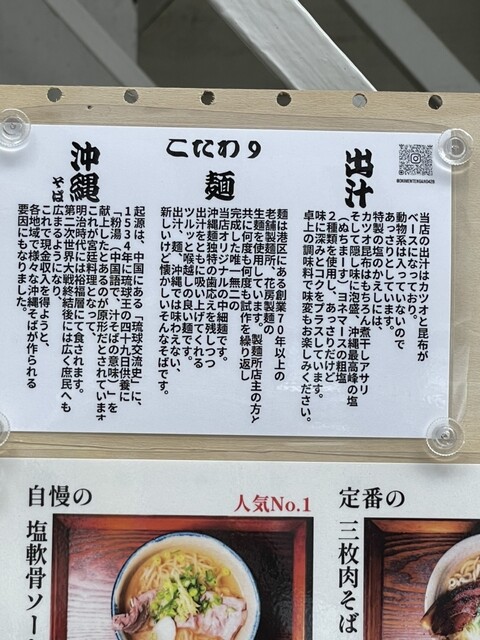 こだわり
出汁
当店の出汁はカツオと昆布が
ベースになっており、
動物系は入っていないので
あっさりとしています。
特製の塩のかえしには、
カツオ昆布はもちろん煮干しアサリ
そして隠し味に泡盛、沖縄最高峰の塩
（ぬちまーす）ヨネマースの粗塩
２種類を使用し、あっさりだけど
味に深みとコクをプラスしています。
卓上の調味料で味変もお楽しみください。
麺
麺は港区にある創業７０年以上の
老舗製麺所、花房製麺の
生麺を使用しています。製麺所店主の方と
共に何度も何度も試作を繰り返し
完成した唯一無二の
当店オリジナルの中細麺です。
沖縄麺独特の歯応えを残しつつ
出汁を共に吸い上げてくれる
ツルッと喉越しの良い麺です。
出汁、麺、沖縄では味わえない、
新しいけど懐かしいそんなそばです。
沖縄そば
起源は、中国にある「琉球交流史」に、
1534年に琉球王の四十九日供養に
「粉湯（中国語で、汁そばの意味）」を
献上したとあるのが原形だとされています
これが宮廷料理となって、
明治時代には裕福層にて食されます。
第二次世界大戦終結後には広く庶民へも
広まるようになり
これで現金収入を得ようと、
各地域で様々な沖縄そばが作られる
要因にもなりました。
定番の
三枚肉そば
人気No.1
自慢の
塩軟骨ソー